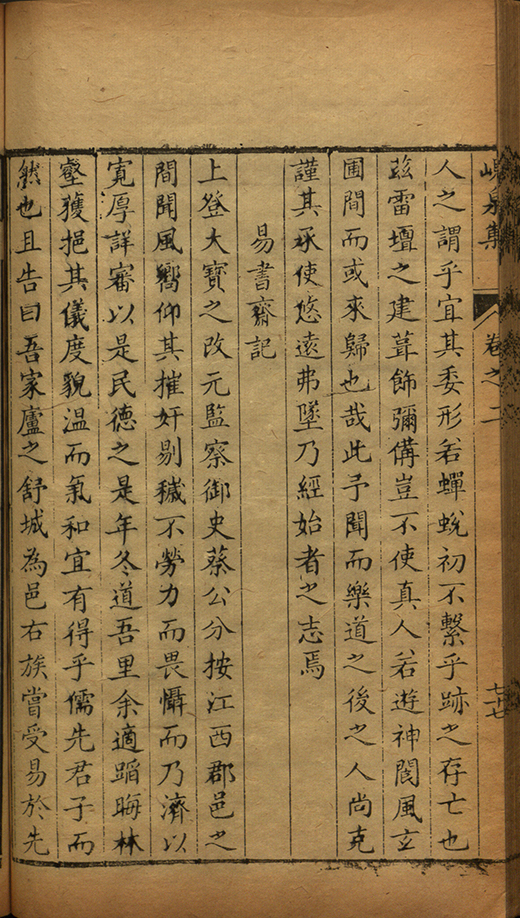 峴泉集 卷之二 七十七
人之謂乎宜其委形若蟬蛻初不繫乎跡之存亡也
茲雷壇之建葺飾彌備豈不使真人若遊神閬風玄
圃間而或來歸也哉此予聞而樂道之後之人尚克
謹其承使悠遠弗墜乃經始者之志焉
易書齋記
上登大寶之改元監察御史蔡公分按江西郡邑之
間聞風嚮仰其摧奸剔穢不勞力而畏懾而乃濟以
寬厚詳審以是民德之是年冬道吾里余適蹈晦林
壑獲挹其儀度貌溫而氣和宜有得乎儒先君子而
然也且告曰吾家廬之舒城為邑右族嘗受易於先